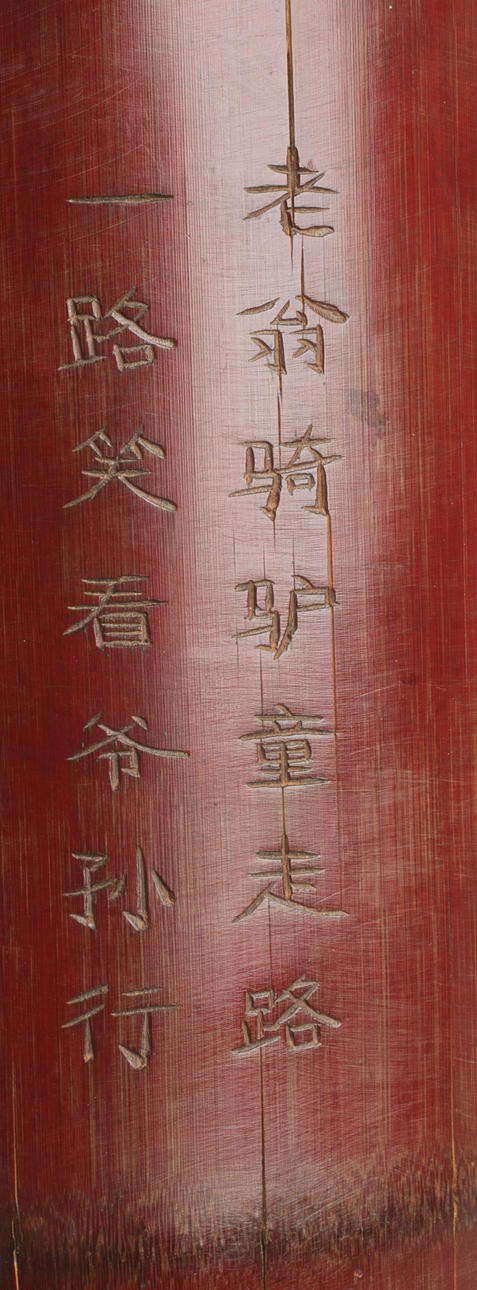 老翁骑驴童走路
一路笑看爷孙行